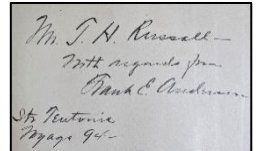 Mr. T. H. Russell—
With regards from
Frank E. Anderson
Str. Teutonic
Voyage 94—